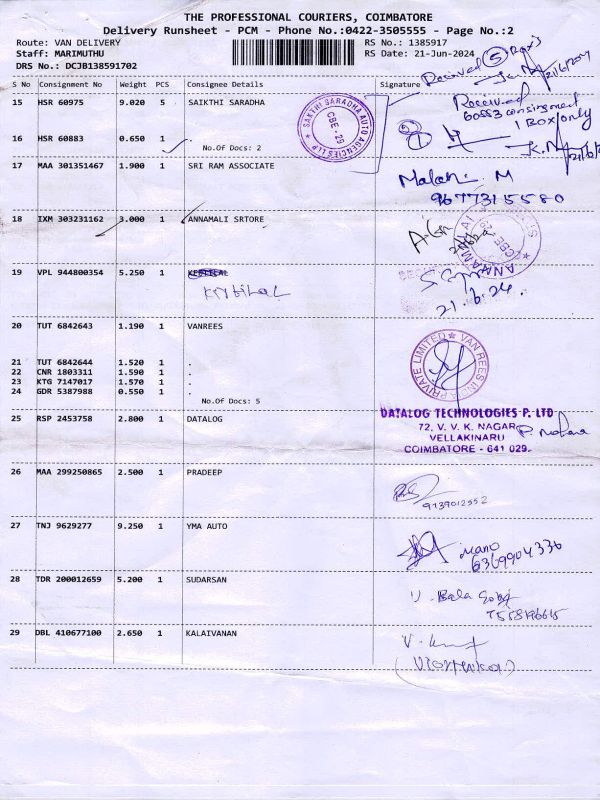 THE PROFESSIONAL COURIERS, COIMBATORE
Delivery Runsheet - PCM - Phone No.:0422-3505555 - Page No.:2
Route: VAN DELIVERY RS No.: 1385917
Staff: MARIMUTHU RS Date: 21-Jun-2024
DRS No.: DCJB138591702
S No Consignment No Weight PCS Consignee Details Signature
Received 5 Box's
15 HSR 60975 9.020 5 SAIKTHI SARADHA
SAKTHI SARADHA AUTO AGENCIES LLP
CBE-29
Received
60883 consignment
1 Box only
16 HSR 60883 0.650 1
No.Of Docs: 2
17 MAA 301351467 1.900 1 SRI RAM ASSOCIATE
Malar M
9677315580
18 IXM 303231162 3.000 1 ANNAMALI SRTORE
19 VPL 944800354 5.250 1
21.6.24.
20 TUT 6842643 1.190 1 VANREES
VAN REES INDIA PRIVATE LIMITED
21 TUT 6842644 1.520 1 .
22 CNR 1803311 1.590 1 .
23 KTG 7147017 1.570 1 .
24 GDR 5387988 0.550 1 .
No.Of Docs: 5
25 RSP 2453758 2.800 1 DATALOG
DATALOG TECHNOLOGIES P. LTD
72, V. V. K. NAGAR,
VELLAKINARU
COIMBATORE - 641 029.
26 MAA 299250865 2.500 1 PRADEEP
9739012552
27 TNJ 9629277 9.250 1 YMA AUTO
Mano
6369904336
28 TDR 200012659 5.200 1 SUDARSAN
29 DBL 410677100 2.650 1 KALAIVANAN